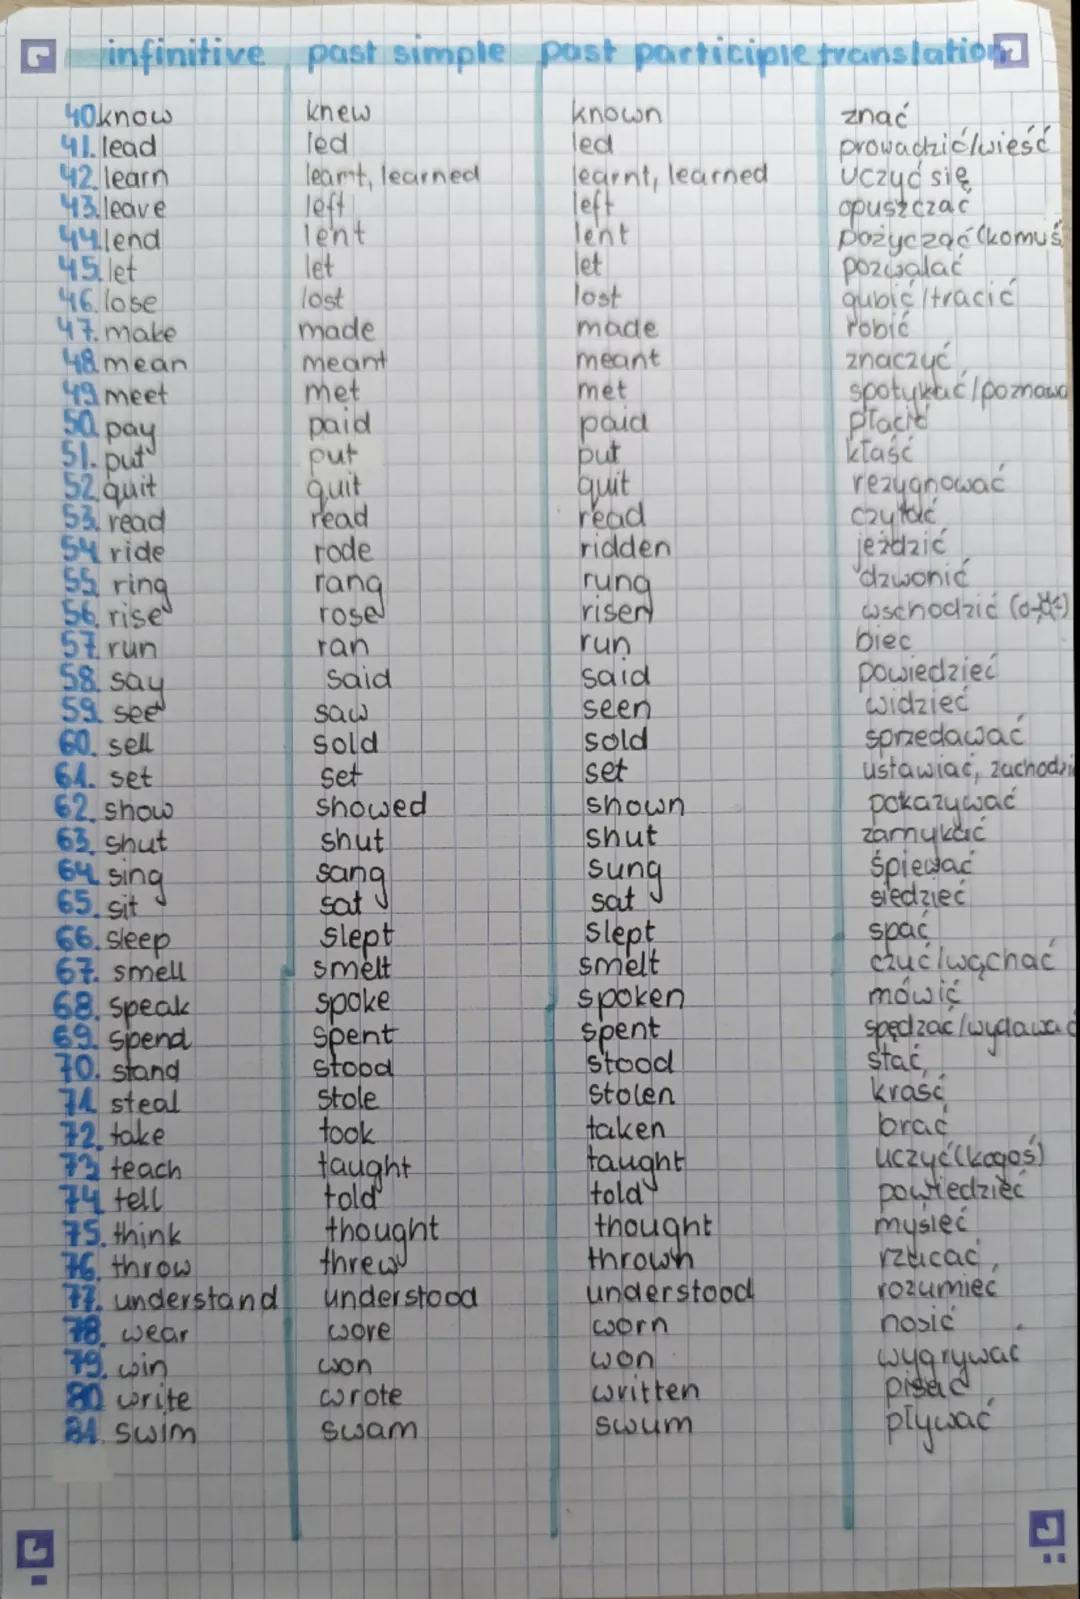 infinitive past simple past participle translation
40 know knew known znać
41. lead led led prowadzić/wieść
42. learn learnt, learned learnt, learned uczyć się
43. leave left left opuszczać
44. lend lent lent pożyczać (komuś
45. let let let pozwalać
46. lose lost lost gubić/tracić
47. make made made robić
48. mean meant meant znaczyć
49 meet met met spotykać/poznawa
50. pay paid paid płacić
51. put put put kłaść
52. quit quit quit rezygnować
53. read read read czytać
54. ride rode ridden jeździć
55. ring rang rung dzwonić
56. rise rose risen wschodzić (o
57. run ran run biec
58. say said said powiedzieć
59. see saw seen widzieć
60. sell sold sold sprzedawać
61. set set set ustawiać, zachodzi
62. show showed shown pokazywać
63. shut shut shut zamykać
64. sing sang sung śpiewać
65. sit sat sat siedzieć
66. sleep slept slept spać
67. smell smelt smelt czuć/wąchać
68. speak spoke spoken mówić
69. spend spent spent spędzać/wydawać
70. stand stood stood stać
71. steal stole stolen kraść
72. take took taken brać
73. teach taught taught uczyć (kogoś)
74. tell told told powiedzieć
75. think thought thought myśleć
76. throw threw thrown rzucać
77. understand understood understood rozumieć
78. wear wore worn nosić
79. win won won wygrywać
80 write wrote written pisać
81. swim swam swum pływać